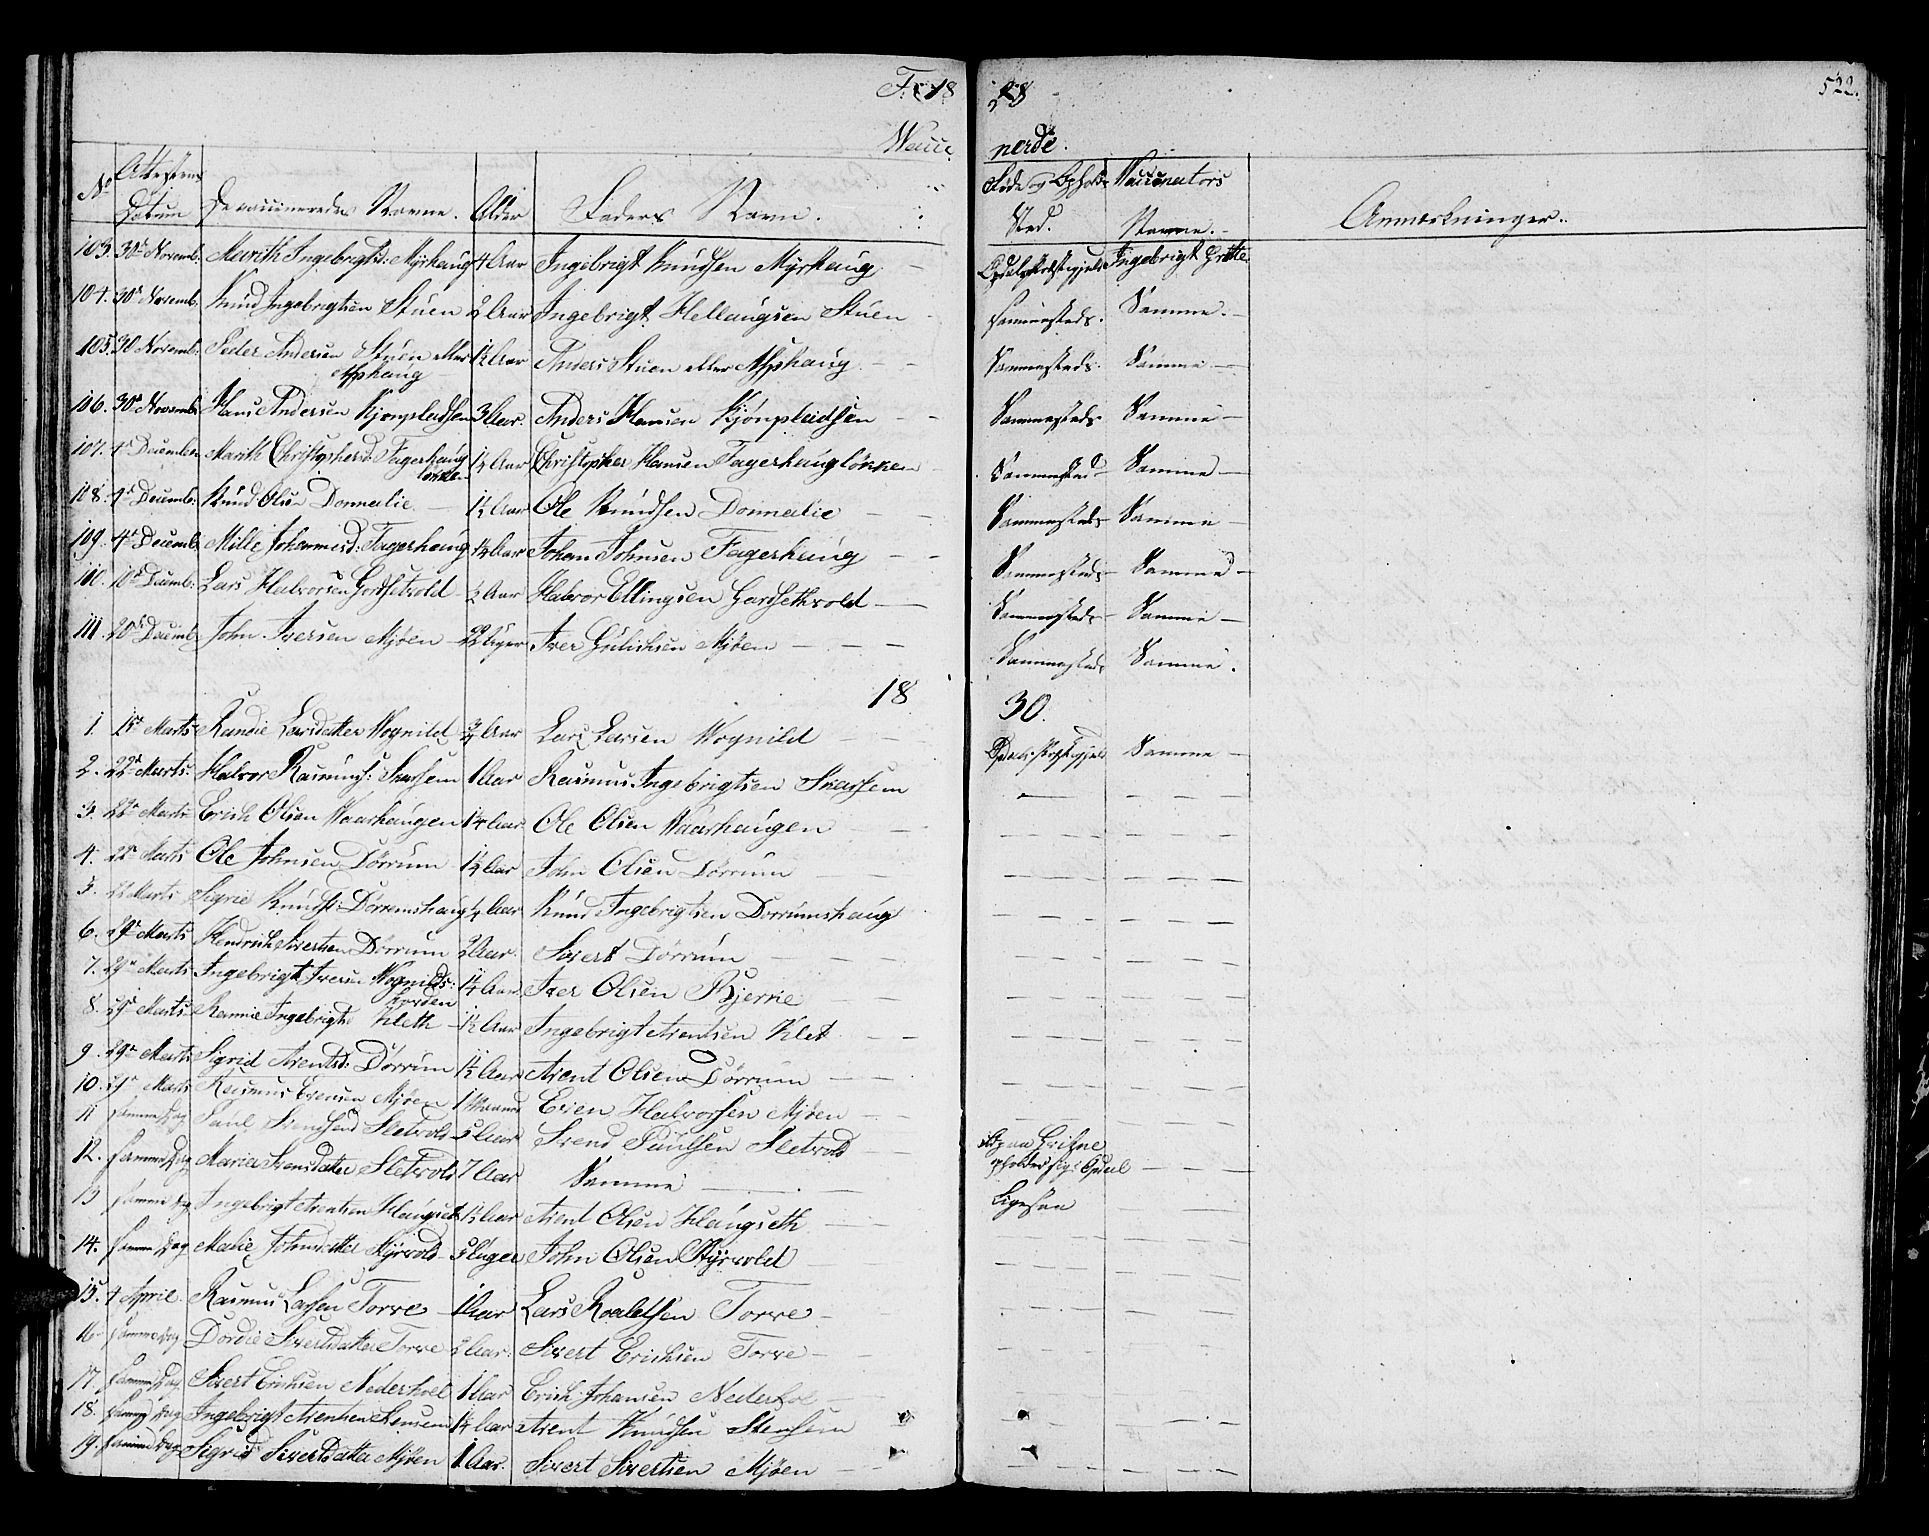 18 28 522.
Vacci nerde.
No Attestens Datum De vaccineredes Navne. Alder Faders Navn. Føde og Opholds Sted. Vaccinators Navne. Anmærkninger.
103. 30te Novemb. Marith Ingebrigtsd: Myrhaug 4 Aar Ingebrigt Knudsen Myrhaug. Opdals Præstegjeld Ingebrigt Grøtte
104. 30te Novemb. Knud Ingebrigtsen Stuen 2 Aar Ingebrigt Hellaugsen Stuen Sammesteds. Samme.
105. 30 Novemb. Peder Andersen Stuen eller Asphaug 1½ Aar Anders Stuen eller Asphaug Sammesteds. Samme
106. 30te Novemb. Hans Andersen Kjønpladsen 3 Aar. Anders Hansen Kjønpladsen Sammesteds Samme
107. 4de December Marith Christophersd: Fagerhaug løkken 1½ Aar Christopher Hansen Fagerhaugløkken Sammested Samme
108. 4de Decemb: Knud Olsen Donnalie 1½ Aar Ole Knudsen Donnalie Sammesteds Samme
109. 4de Decemb. Mille Johannesd: Fagerhaug 1¼ Aar Johan Johnsen Fagerhaug Sammesteds Samme
110. 10de Decemb: Lars Halvorsen Gorsetvold ½ Aar Halvor Ellingsen Gorsethvold Sammesteds Samme
111. 20de Decemb. John Iversen Mjøen 22 Uger Iver Gulichsen Mjøen Sammesteds Samme.
18 30.
1. 15de Marts Randie Larsdatter Vognild ¾ Aar Lars Larsen Vognild Opdals Præstegjeld Samme
2. 22de Marts. Halvor Rasmus: Snarsem 1 Aar Rasmus Ingebrigtsen Snarsem
3. 22de Marts Erich Olsen Vaarhaugen 1¼ Aar. Ole Olsen Vaarhaugen
4. 22de Marts Ole Johnsen Dørrum 1½ Aar John Olsen Dørrum
5. 22 Marts Sigrie Knudsd: Dørremshaug ½ Aar Knud Ingebrigtsen Dorrumshaug
6. 29de Marts Hendrich Sivertsen Dørrum 2 Aar. Sivert Dørrum
7. 29de Marts Ingebrigt Iversen 1¼ Aar Iver Olsen Bjerrie
8. 29de Marts Rannie Ingebrigtsd Kleth 1½ Aar Ingebrigt Arentsen Klet
9. 29de Marts Sigrid Arentsd: Dørrum 1½ Aar Arent Olsen Dørrum
10. 29de Marts Rasmus Evensen Mjøen 1 Maaned Even Halvorsen Mjøen
11 samme Dag Paul Svendsen Sletvold 5 Aar Svend Paulsen Sletvold paa Qvikne opholder sig i Opdal
12. samme Dag Marie Svensdatter Sletvold 7 Aar Samme Ligesaa
13 samme Dag Ingebrigt Arentsen Haugset 1½ Aar Arent Olsen Haugseth
14. samme Dag Malie Johnsdatter Styrvold 5 Uger John Olsen Styrvold
15. 4 April Rasmus Larsen Torve 1 Aar Lars Roaldsen Torve
16 samme Dag Dordie Sivertsdatter Torve 2 Aar. Sivert Erichsen Torve
17 samme Dag Sivert Erichsen Nederhoel 1 Aar Erich Johansen Nederhol
18. samme Dag Ingebrigt Arentsen Stensem 1¼ Aar Arent Knudsen Stensem
19. samme Dag Sigrid Sivertsdatter Mjøen 1 Aar. Sivert Sivertsen Mjøen